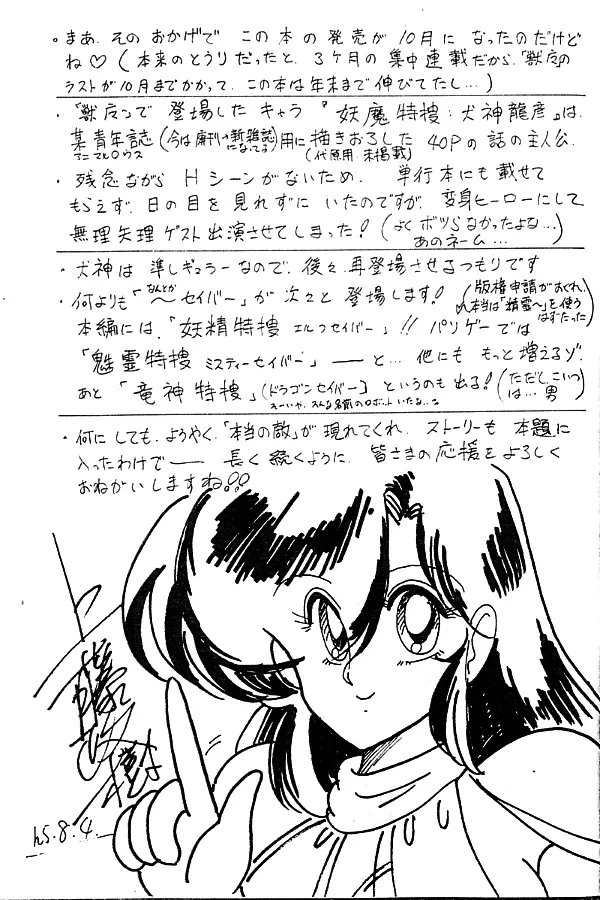 。まあ、そのおかげで この本の発売が 10月に なったのだけど
ね♡(本来のとうりだったと、3ケ月の集中連載だから、「獣戻」の
ラストが10月までかかって、この本は年末まで伸びてたし…)
・「獣戻」で 登場したキャラ 『妖魔特捜:犬神龍彦』は、
某青年誌(今は廃刊→新雑誌になってる)用に描きおろした 40Pの話の主人公。
アニマルハウス (代原用 未掲載)
・残念ながら Hシーンがないため、 単行本にも載せて
もらえず、日の目を見れずに いたのですが、変身ヒーローにして
無理矢理ゲスト出演させてしまった!(よくボツらなかったよな…あのネーム…)
・犬神は 準レギュラーなので、後々 再登場させるつもりです
・何よりも「〜セイバー」が 次々と 登場します!(版権申請がおくれ、本当は「精霊〜」を使うはずだった)
なんとか
本編には、「妖精特捜 エルフセイバー」!! パソゲーでは
「魅霊特捜 ミスティーセイバー」 ――と… 他にも もっと増えるゾ、
あと「竜神特捜」(ドラゴンセイバー) というのも出る!(ただし、こいつは…男)
えーいや、そんな名前のロボットいたな…る
・何にしても、ようやく、「本当の敵」が 現れてくれ、ストーリーも 本題に
入ったわけで―― 長く続くように、皆さまの応援をよろしく
おねがいしますね!!
h5.8.4.